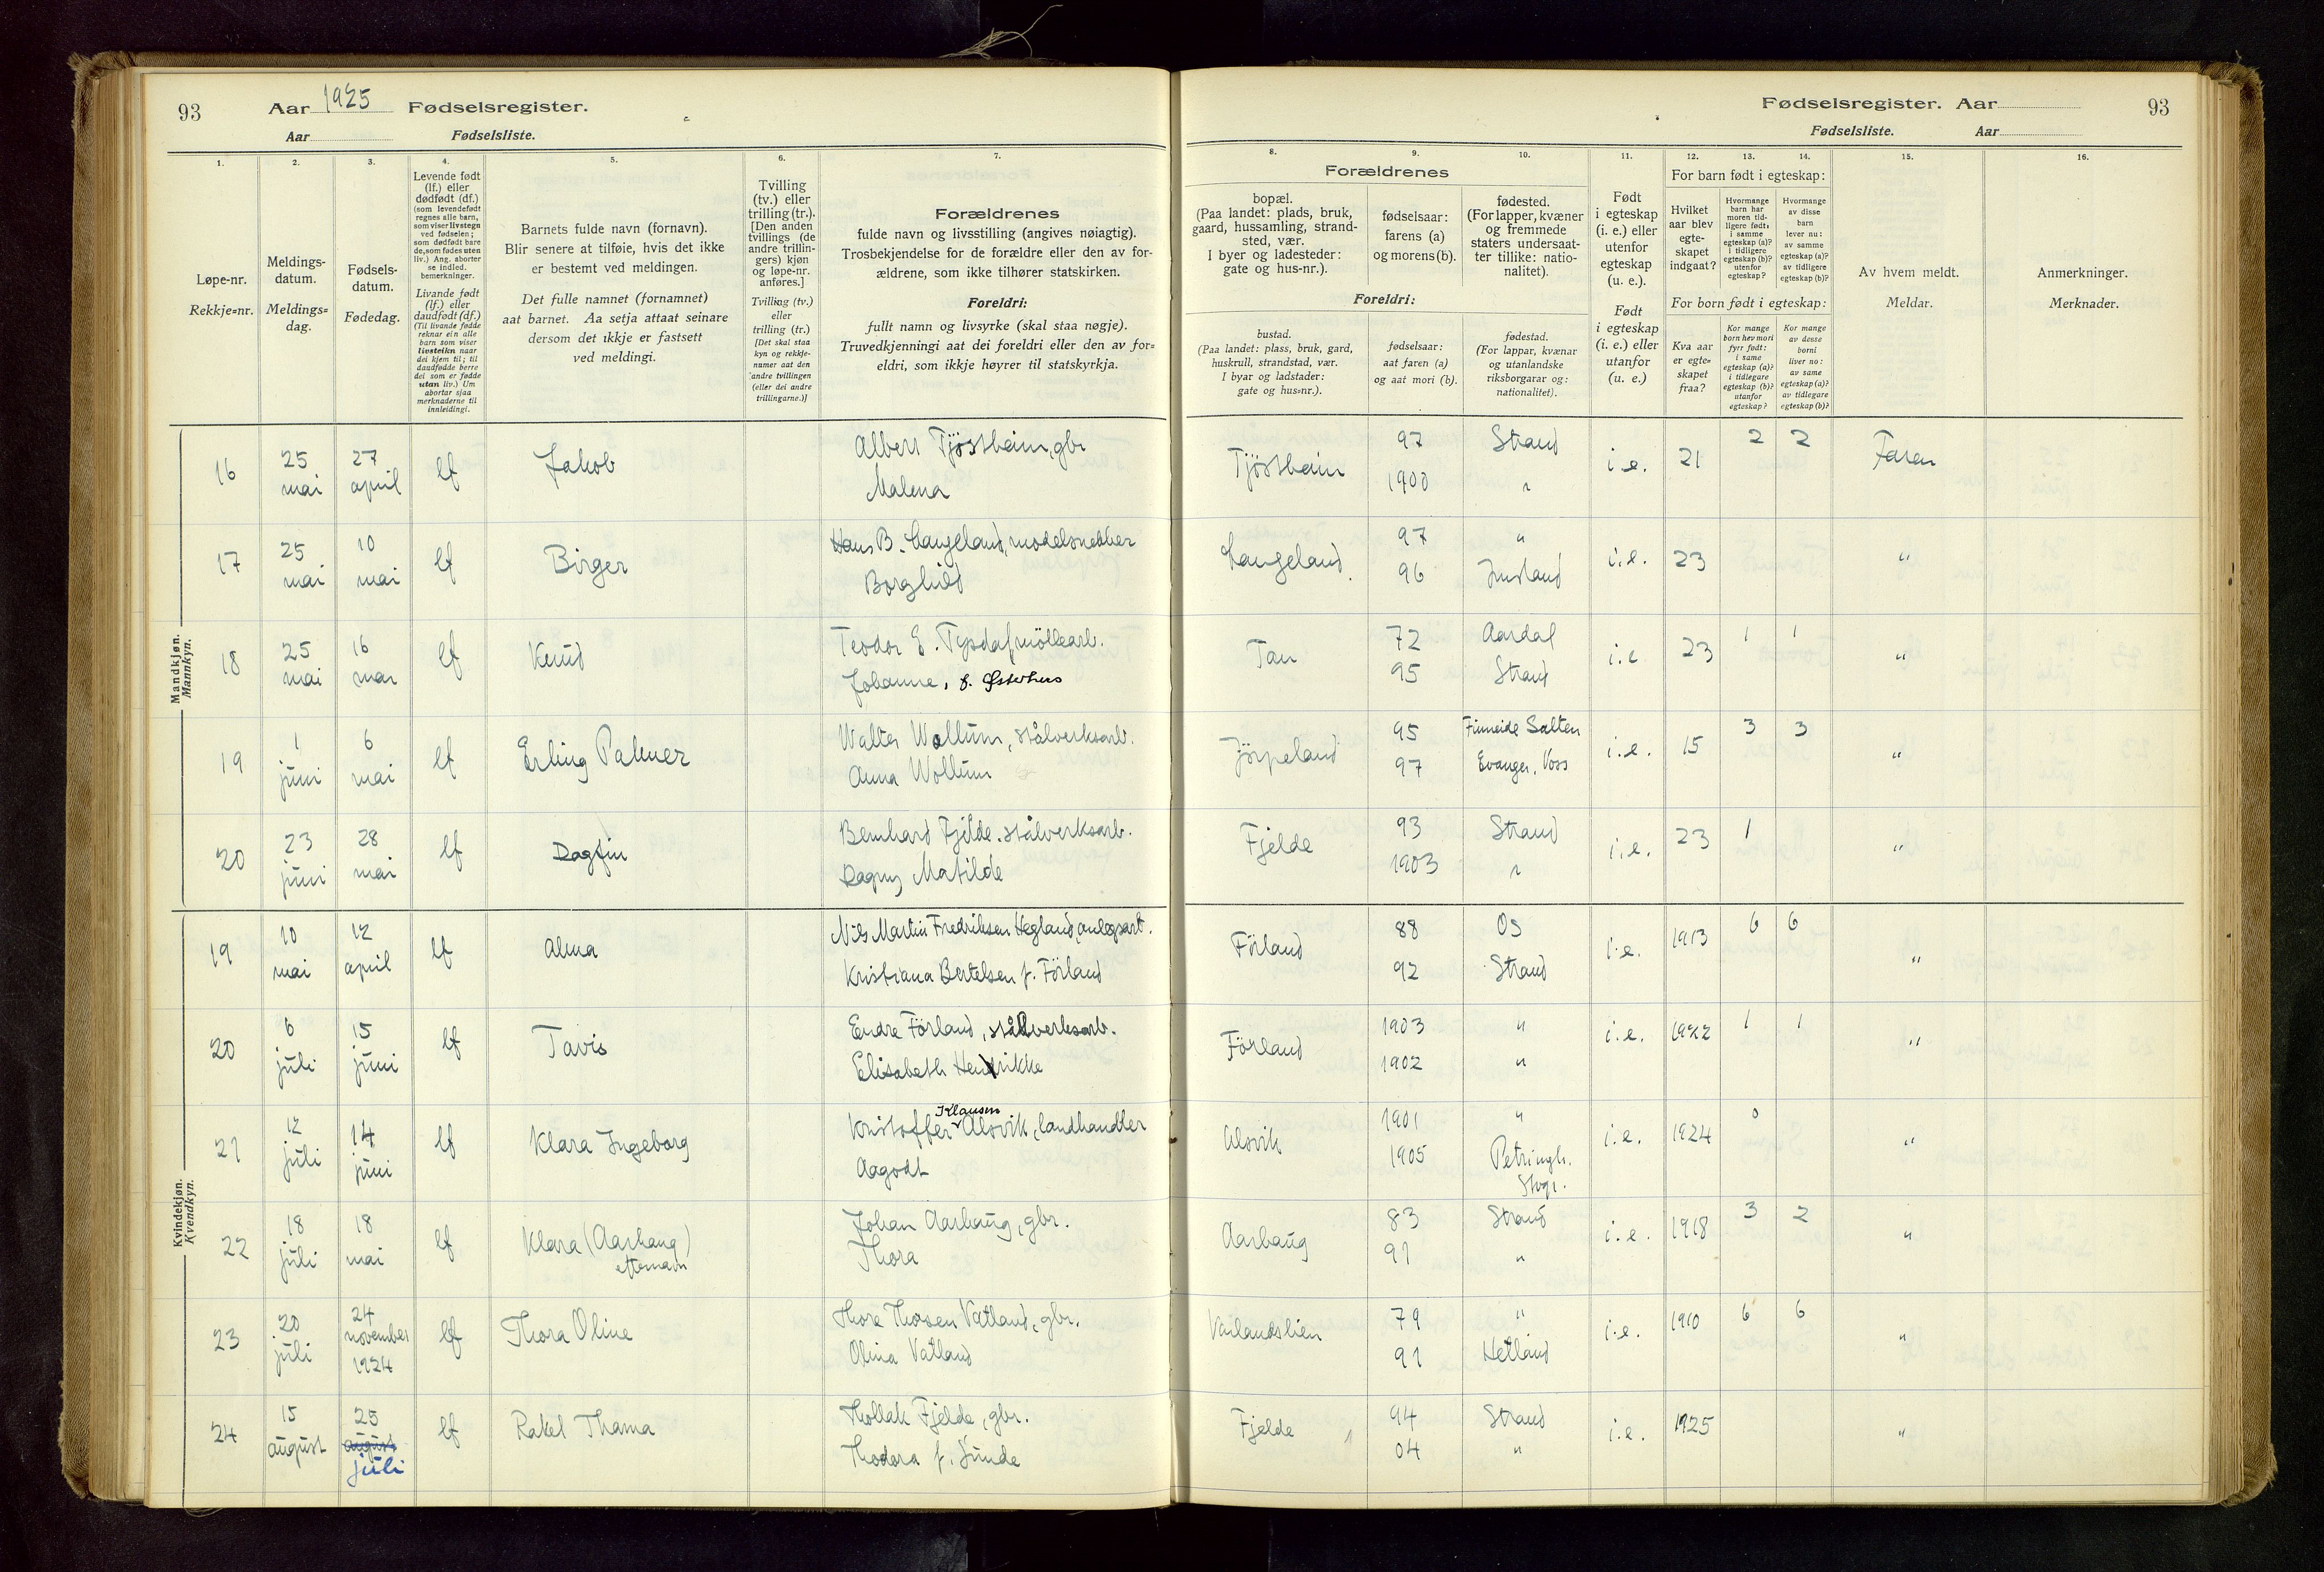 93 Aar 1925 Fødselsregister.
Aar Fødselsliste.
1.
Løpe-nr.
Rekkje=nr.
2.
Meldings-
datum.
Meldings=
dag.
3.
Fødsels-
datum.
Fødedag.
4.
Levende født
(lf.) eller
dødfødt (df.)
(som levendefødt
regnes alle barn,
som viser livstegn
ved fødselen;
som dødfødt bare
de, som fødes uten
liv.) Ang. aborter
se indled.
bemerkninger.
Livande født
(lf.) eller
daudfødt (df.)
(Til livande fødde
reknar ein alle
barn som viser
livsteikn naar
dei kjem til; til
daudfødde berre
dei som er fødde
utan liv.) Um
abortar sjaa
merknaderne til
innleidingi.
5.
Barnets fulde navn (fornavn).
Blir senere at tilføie, hvis det ikke
er bestemt ved meldingen.
Det fulle namnet (fornamnet)
aat barnet. Aa setja attaat seinare
dersom det ikkje er fastsett
ved meldingi.
6.
Tvilling
(tv.) eller
trilling (tr.).
[Den anden
tvillings (de
andre trillin-
gers) kjøn
og løpe-nr.
anføres.]
Tvilling (tv.)
eller
trilling (tr.)
[Det skal staa
kyn og rekkje-
numer aat den
andre tvillingen
(eller dei andre
trillingarne.)]
7.
Forældrenes
fulde navn og livsstilling (angives nøiagtig).
Trosbekjendelse for de forældre eller den av for-
ældrene, som ikke tilhører statskirken.
Foreldri:
fullt namn og livsyrke (skal staa nøgje).
Truvedkjenningi aat dei foreldri eller den av for=
eldri, som ikkje høyrer til statskyrkja.
Mandkjøn.
Mannkyn.
16 25 mai 27 april lf Jakob Albert Tjøstheim, gbr
Malena
17 25 mai 10 mai lf Birger Hans B. Langeland, modelsnekker
Borghild
18 25 mai 16 mar lf Knud Teodor E. Tysdal, möllearb.
Johanne, f. Østerhus
19 1 juni 6 mai lf Erling Palmer Walter Wollum, stålverksarb.
Anna Wollum
20 23 juni 28 mai lf Dagfin Bernhard Fjelde, stålverksarb.
Dagny Matilde
Kvindekjøn.
Kvendkyn.
19 10 mai 12 april lf Alma Nils Martin Fredriksen Hegland, anlegsarb.
Kristiana Bertelsen f. Förland
20 6 juli 15 juni lf Tavis Endre Förland, stålverksarb.
Elisabeth Henrikke
21 12 juli 14 juni lf Klara Ingeborg Kristoffer Klausen Alsvik, landhandler
Aagodt
22 18 juli 18 mai lf Klara (Aarhaug) Johan Aarhaug, gbr.
efternavn Thora
23 20 juli 24 november 1924 lf Thora Oline Thore Thorsen Vatland, gbr.
Olina Vatland
24 15 august 25 august juli lf Rakel Thama Thollak Fjelde, gbr.
Thodora f. Sunde
Fødselsregister. Aar 93
Fødselsliste. Aar
Forældrenes
8.
bopæl.
(Paa landet: plads, bruk,
gaard, hussamling, strand-
sted, vær.
I byer og ladesteder:
gate og hus-nr.).
9.
fødselsaar:
farens (a)
og morens (b).
10.
fødested.
(For lapper, kvæner
og fremmede
staters undersaat-
ter tillike: natio-
nalitet).
Foreldri:
bustad.
(Paa landet: plass, bruk, gard,
huskrull, strandstad, vær.
I byar og ladstader:
gate og hus=nr.).
fødselsaar:
aat faren (a)
og aat mori (b).
fødestad.
(For lappar, kvænar
og utanlandske
riksborgarar og:
nationalitet).
11.
Født
i egteskap
(i. e.) eller
utenfor
egteskap
(u. e.).
Født
i egteskap
(i. e.) eller
utanfor
(u. e.).
For barn født i egteskap:
12.
Hvilket
aar blev
egte-
skapet
indgaat?
13.
Hvormange
barn har
moren tid-
ligere født:
i samme
egteskap (a)?
i tidligere
egteskap (b)?
utenfor
egteskap?
14.
Hvormange
av disse
barn
lever nu:
av samme
egteskap (a)?
av tidligere
egteskap (b)?
For born født i egteskap:
Kva aar
er egte=
skapet
fraa?
Kor mange
born hev mori
fyrr født:
i same
egteskap (a)?
i tidlegare
egteskap (b)?
utanfor
egteskap?
Kor mange
av desse
borni
liver no:
av same
egteskap (a)?
av tidlegare
egteskap (b)?
15.
Av hvem meldt.
Meldar.
16.
Anmerkninger.
Merknader.
Tjøstheim 97 Strand i.e. 21 2 2 Faren
1900 "
Langeland 97 " i.e. 23 "
96 Imsland
Tau 72 Aardal i.e. 23 1 1 "
95 Strand
Jörpeland 95 Finneide Salten i.e. 15 3 3 "
97 Evanger, Voss
Fjelde 93 Strand i.e. 23 1 "
1903 "
Förland 88 Os i.e. 1913 6 6 "
92 Strand
Förland 1903 " i.e. 1922 1 1 "
1902 "
Alsvik 1901 " i.e. 1924 0 "
1905 Petringh.
Stvgr.
Aarhaug 83 Strand i.e. 1918 3 2 "
91 "
Vatlandslien 79 " i.e. 1910 6 6 "
91 Hetland
Fjelde 94 Strand i.e. 1925 "
04 "